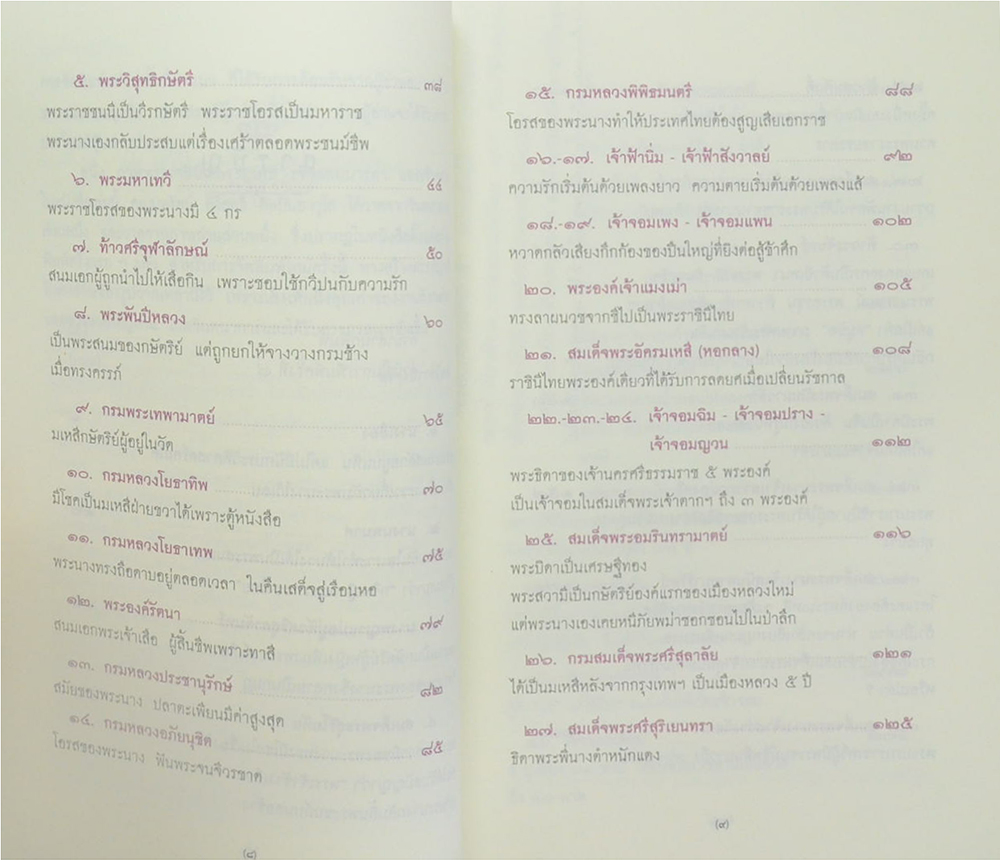 ๕. พระวิสุทธิกษัตรี ๓๘
พระราชชนนีเป็นวีรกษัตรี พระราชโอรสเป็นมหาราช
พระนางเองกลับประสบแต่เรื่องเศร้าตลอดพระชนม์ชีพ
๖. พระมหาเทวี ๔๔
พระราชโอรสของพระนางมี ๔ กร
๗. ท้าวศรีจุฬาลักษณ์ ๕๐
สนมเอกผู้ถูกนำไปให้เสือกิน เพราะชอบใช้กวีปนกับความรัก
๘. พระพันปีหลวง ๖๐
เป็นพระสนมของกษัตริย์ แต่ถูกยกให้จางวางกรมช้าง
เมื่อทรงครรภ์
๙. กรมพระเทพามาตย์ ๖๕
มเหสีกษัตริย์ผู้อยู่ในวัด
๑๐. กรมหลวงโยธาทิพ ๗๐
มีโชคเป็นมเหสีฝ่ายขวาได้เพราะตู้หนังสือ
๑๑. กรมหลวงโยธาเทพ ๗๕
พระนางทรงถือดาบอยู่ตลอดเวลา ในคืนเสด็จสู่เรือนหอ
๑๒. พระองค์รัตนา ๗๙
สนมเอกพระเจ้าเสือ ผู้สิ้นชีพเพราะทาสี
๑๓. กรมหลวงประชานุรักษ์ ๘๒
สมัยของพระนาง ปลาตะเพียนมีค่าสูงสุด
๑๔. กรมหลวงอภัยนุชิต ๘๕
โอรสของพระนาง ฟันพระจนจีวรขาด
(๘)
๑๕. กรมหลวงพิพิธมนตรี ๘๘
โอรสของพระนางทำให้ประเทศไทยต้องสูญเสียเอกราช
๑๖.-๑๗. เจ้าฟ้านิ่ม - เจ้าฟ้าสังวาลย์ ๙๒
ความรักเริ่มต้นด้วยเพลงยาว ความตายเริ่มต้นด้วยเพลงแส้
๑๘.-๑๙. เจ้าจอมเพง - เจ้าจอมแพน ๑๐๒
หวาดกลัวเสียงกึกก้องของปืนใหญ่ที่ยิงต่อสู้ข้าศึก
๒๐. พระองค์เจ้าแมงเม่า ๑๐๕
ทรงลาผนวชจากชีไปเป็นพระราชินีไทย
๒๑. สมเด็จพระอัครมเหสี (หอกลาง) ๑๐๘
ราชินีไทยพระองค์เดียวที่ได้รับการลดยศเมื่อเปลี่ยนรัชกาล
๒๒.-๒๓.-๒๔. เจ้าจอมฉิม - เจ้าจอมปราง -
เจ้าจอมญวน ๑๑๒
พระธิดาของเจ้านครศรีธรรมราช ๕ พระองค์
เป็นเจ้าจอมในสมเด็จพระเจ้าตากฯ ถึง ๓ พระองค์
๒๕. สมเด็จพระอมรินทรามาตย์ ๑๑๖
พระบิดาเป็นเศรษฐีทอง
พระสวามีเป็นกษัตริย์องค์แรกของเมืองหลวงใหม่
แต่พระนางเองเคยหนีภัยพม่าซอกซอนไปในป่าลึก
๒๖. กรมสมเด็จพระศรีสุลาลัย ๑๒๑
ได้เป็นมเหสีหลังจากกรุงเทพฯ เป็นเมืองหลวง ๕ ปี
๒๗. สมเด็จพระศรีสุริเยนทรา ๑๒๕
ธิดาพระพี่นางตำหนักแดง
(๙)